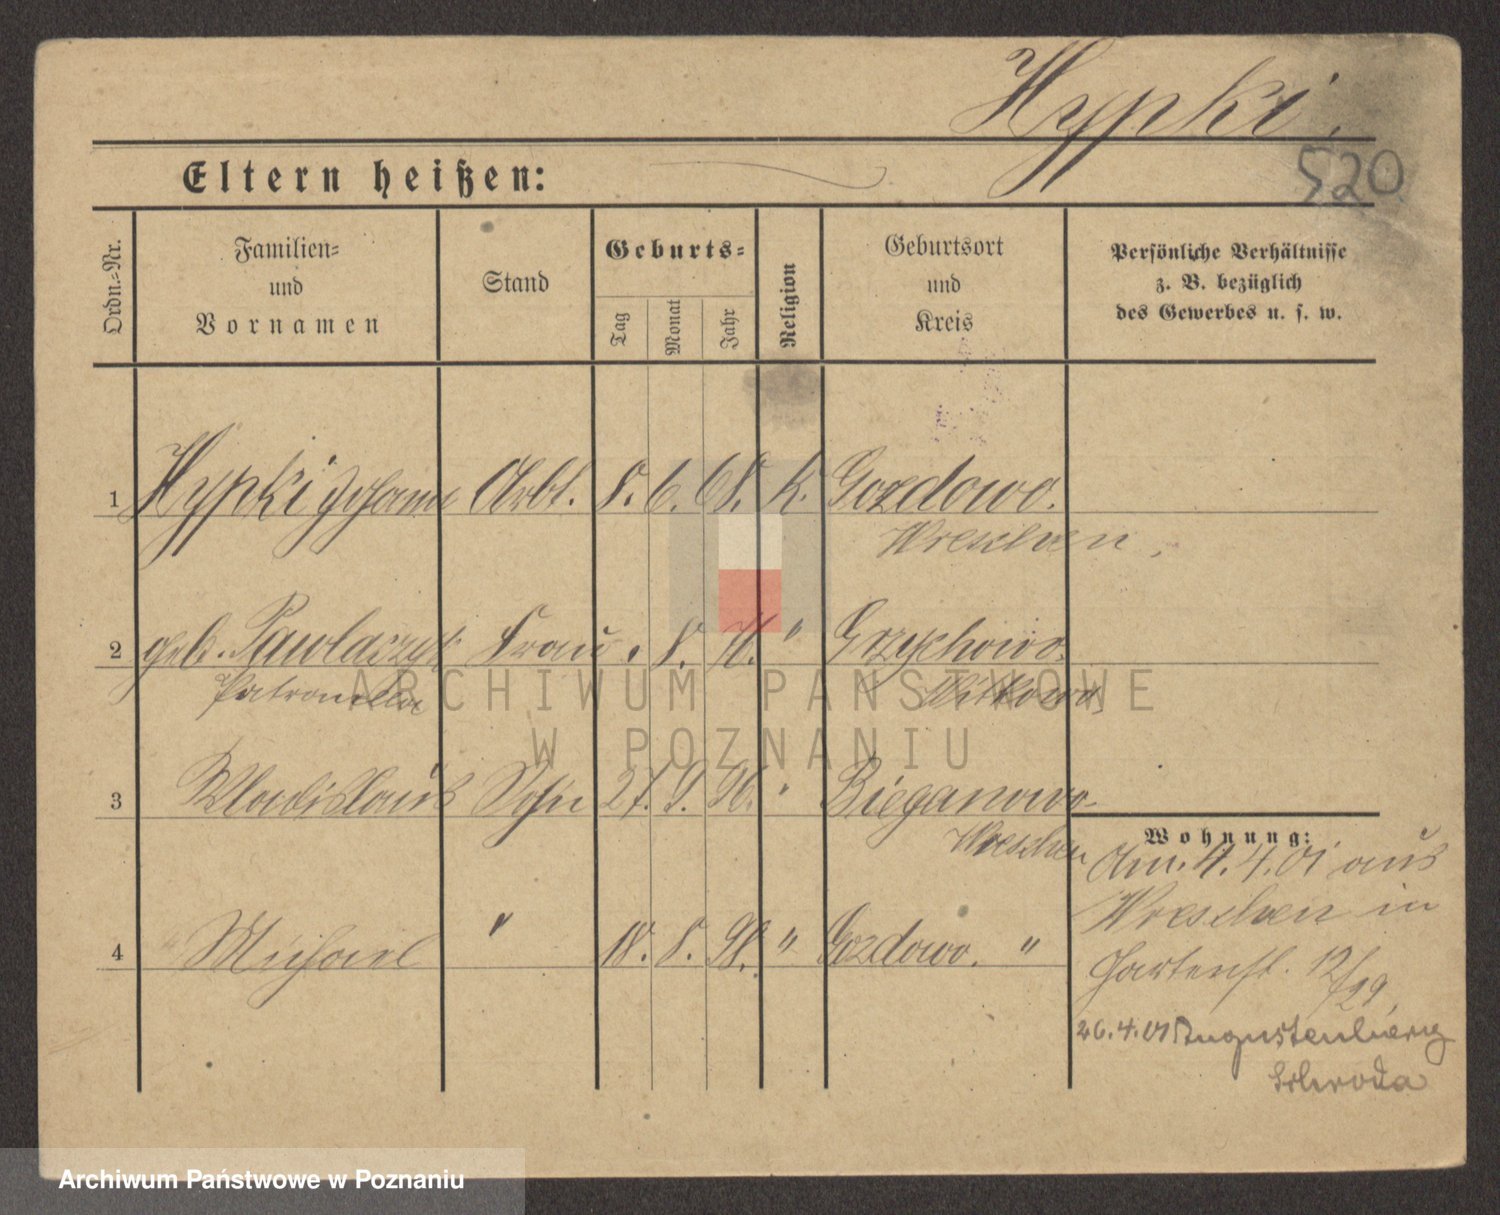 Hypki.
520
Eltern heißen:
Ordn.=Nr.
Familien=
und
Vornamen
Stand
Geburts=
Tag
Monat
Jahr
Religion
Geburtsort
und
Kreis
Persönliche Verhältnisse
z. B. bezüglich
des Gewerbes u. s. w.
1 Hypki Johann Arbt. 8. 6. 68. K. Gozdowo.
Wreschen
2 geb. Pawlaszyk Frau " 8. 76. " Grzychowo.
Petronella Witkowo
3 Wladislaus Sohn 27. 9. 96. " Bieganowo
Wreschen
4 Michael " 18. 8. 98. " Gozdowo. "
Wohnung:
Am. 4. 4. 01 aus
Wreschen in
Gartenst. 12/29.
26.4.01 Augustenberg
Schroda
ARCHIWUM PAŃSTWOWE
W POZNANIU
Archiwum Państwowe w Poznaniu